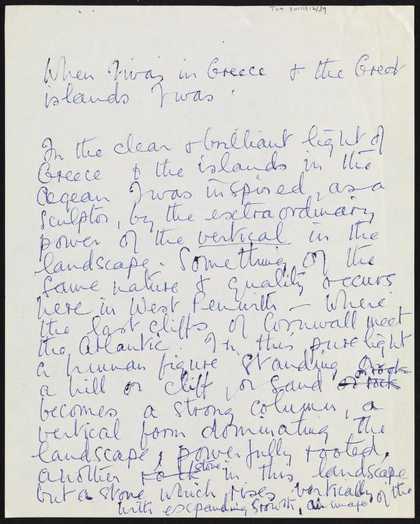 When I was in Greece & the Greek
islands I was.
In the clear & brilliant light of
Greece & the islands in the
Aegean I was inspired, as a
sculptor, by the extraordinary
power of the vertical in the
landscape. Something of the
same nature & quality occurs
here in West Penwith – where
the last cliffs of Cornwall meet
the Atlantic. In this pure light
a human figure standing on rock
a hill or cliff, or sand or rock
becomes a strong column, a
vertical form dominating the
landscape, powerfully rooted,
another stone in this landscape
but a stone which rises vertically
with expanding growth, an image of the